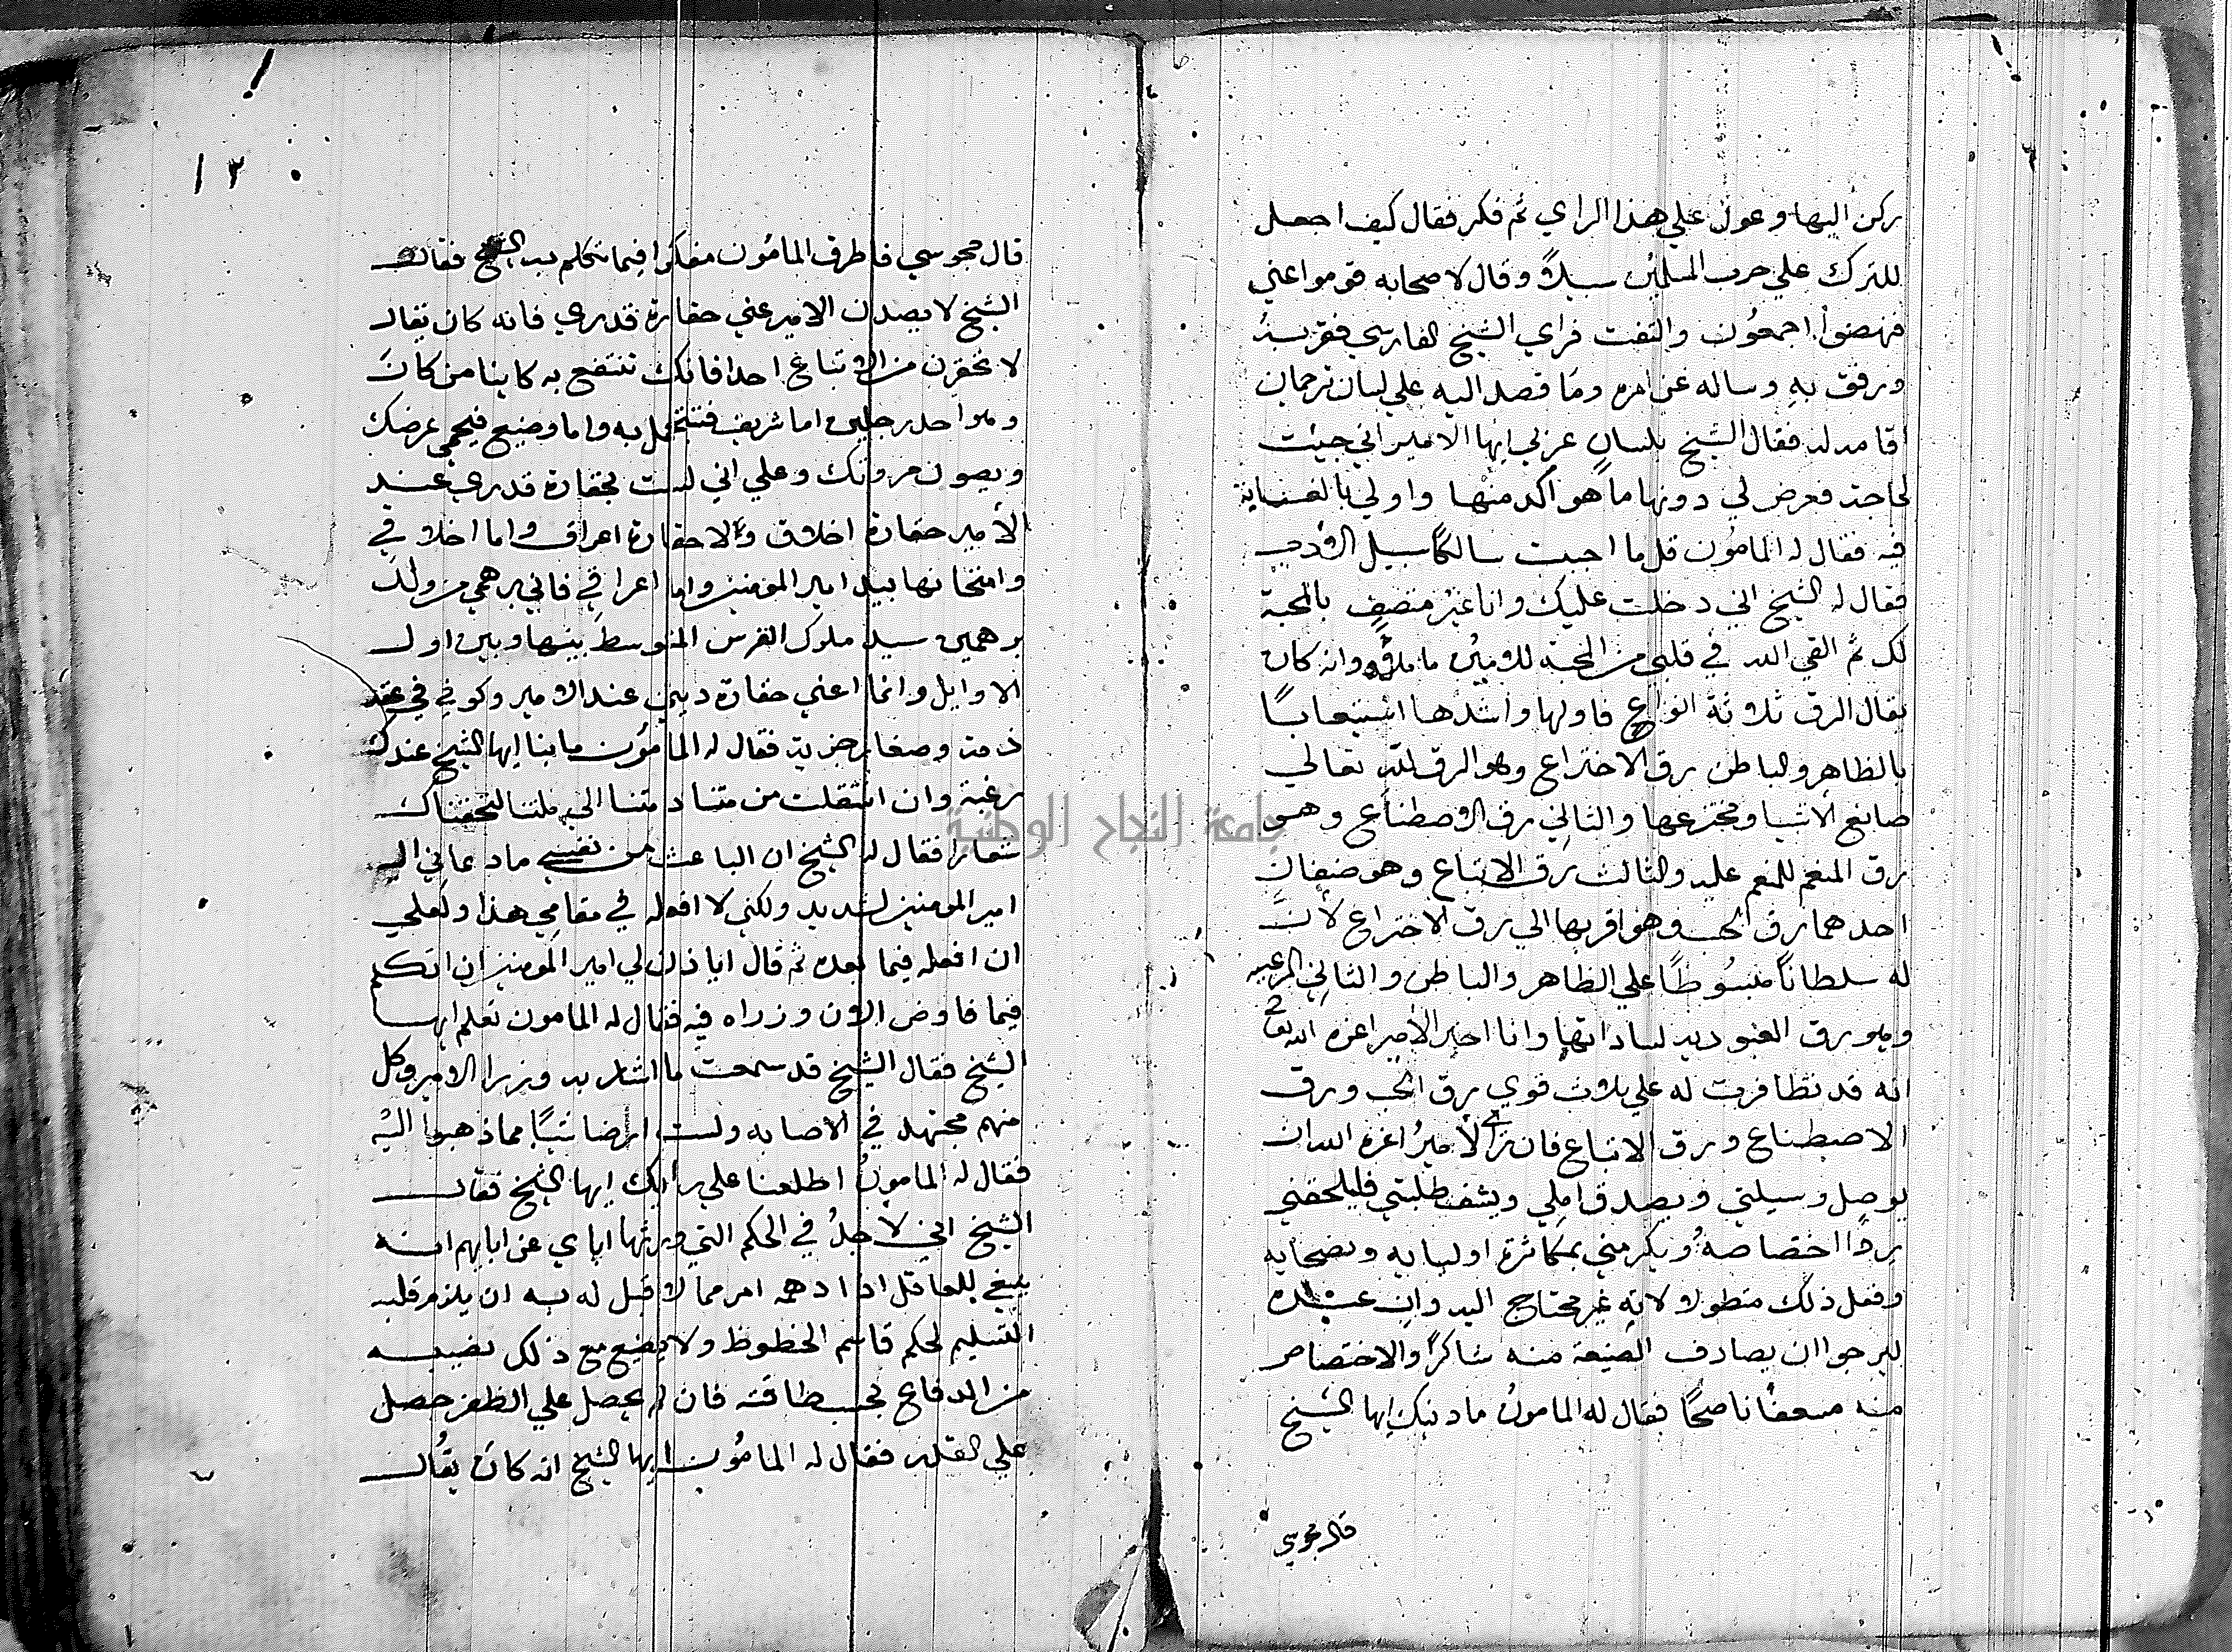 ركن اليها وعول علي هذا الراي ثم فكر فقال كيف اجعل
للترك علي حرب المسلمين سبيلاً وقال لاصحابه قوموا عني
فنهضوا اجمعون والتفت فراي الشيخ الفارسي فقربه
ورفق به وساله عن امره وما قصد اليه علي لسان ترجمان
اقامه له فقال الشيخ بلسان عربي ايها الامير اني جيئت
لحاجة فعرض لي دونها ما هو أكد منها واولي بالعناية
فيه فقال له المامون قل ما احببت سالكاً سبيل الادب
فقال له الشيخ اني دخلت عليك وانا غير متصف بالمحبة
لك ثم القي الله في قلبي من المحبة للامين ما ملأه وانه كان
يقال الرق ثلاثة انواع فاولها واشدها استيعاباً
بالظاهر والباطن رق الاختراع وهو الرق لله تعالي
صانع الاشيا ومخترعها والثاني رق الاصطناع وهو
رق المنعم للمنعم عليه والثالث رق الاتباع وهو صنفان
احدهما رق الحب وهو اقربها الي رق الاختراع لأن
له سلطاناً مبسُوطاً علي الظاهر والباطن والثاني الرعيه
وهو رق العبوديه لساداتها وانا اخبر الأمير اعزه الله تعالي
انه قد تظافرت له علي ثلاث قوي رق الحب ورق
الاصطناع ورق الاتباع فان رأي الأميرُ اعزه الله ان
يوصل وسيلتي ويصدق املي ويشفع طلبتي فليلحفني
رداً اختصاصه ويكرمني بمكاثرة اوليايه ونصحايه
وفعل ذلك متطولا لانه غير محتاج اليه وان عبده
ليرجوا ان يصادف الصنيعة منه شاكراً والاختصاص
منه مسعفاً ناصحاً فقال له المامونُ ما دينك ايها الشيخ
قال مجوسي
١٢
قال مجوسي فاطرق المامُون مفكرا فيما تكلم به الشيخ فقال
الشيخ لا يصدن الامير عني حقارة قدري فانه كان يقال
لا تحقرن من الاتباع احدا فانك تنتفع به كاينا من كان
وهو احد رجلين اما شريف فتتجمل به واما وضيع فيحمي عرضك
ويصون مروتك وعلي اني لست بحقارة قدري عند
الأمير حقارة اخلاق ولا حقارة اعراق واما اخلاقي
وامتحانها بيد امير المومنين واما اعراقي فاني برهمي من ولد
برهمين سيد ملوك الفرس المتوسط بينها وبين اول
الاوايل وانما اعني حقارة ديني عند الامير وكوني في عقد
ذمة وصغار جزية فقال له المامون ما بنا ايها الشيخ عندك
رغبة وان انتقلت من الي ملتنا لتحفناك
شعارا فقال له الشيخ ان الباعث من نفسي ما دعاني اليه
امير المومنين لشديد ولكني لا افعله في مقامي هذا ولعلي
ان افعله فيما بعده ثم قال اياذن لي امير المومنين ان اتكلم
فيما فاوض الان وزراه فيه فقال له المامون تكلم ايها
الشيخ فقال الشيخ قد سمعت ما اشار به وزرا الامير وكل
منهم مجتهد في الاصابه ولست ارضا شيًا مما ذهبوا اليه
فقال له المامونُ اطلعنا علي رايك ايها الشيخ فقال
الشيخ اني لأجدُ في الحكم التي ورثها اباي عن ابايهم انه
ينبغي للعاقل اذا دهمه امر مما لا قبل له به ان يلزم قلبه
التسليم لحكم قاسم الحظوظ ولا يضيع مع ذلك نصيبه
من الدفاع بحسب طاقته فان لم يحصل علي الظفر حصل
علي العذر فقال له المامُون ايها الشيخ انه كان يقُال
جامعة النجاح الوطنية